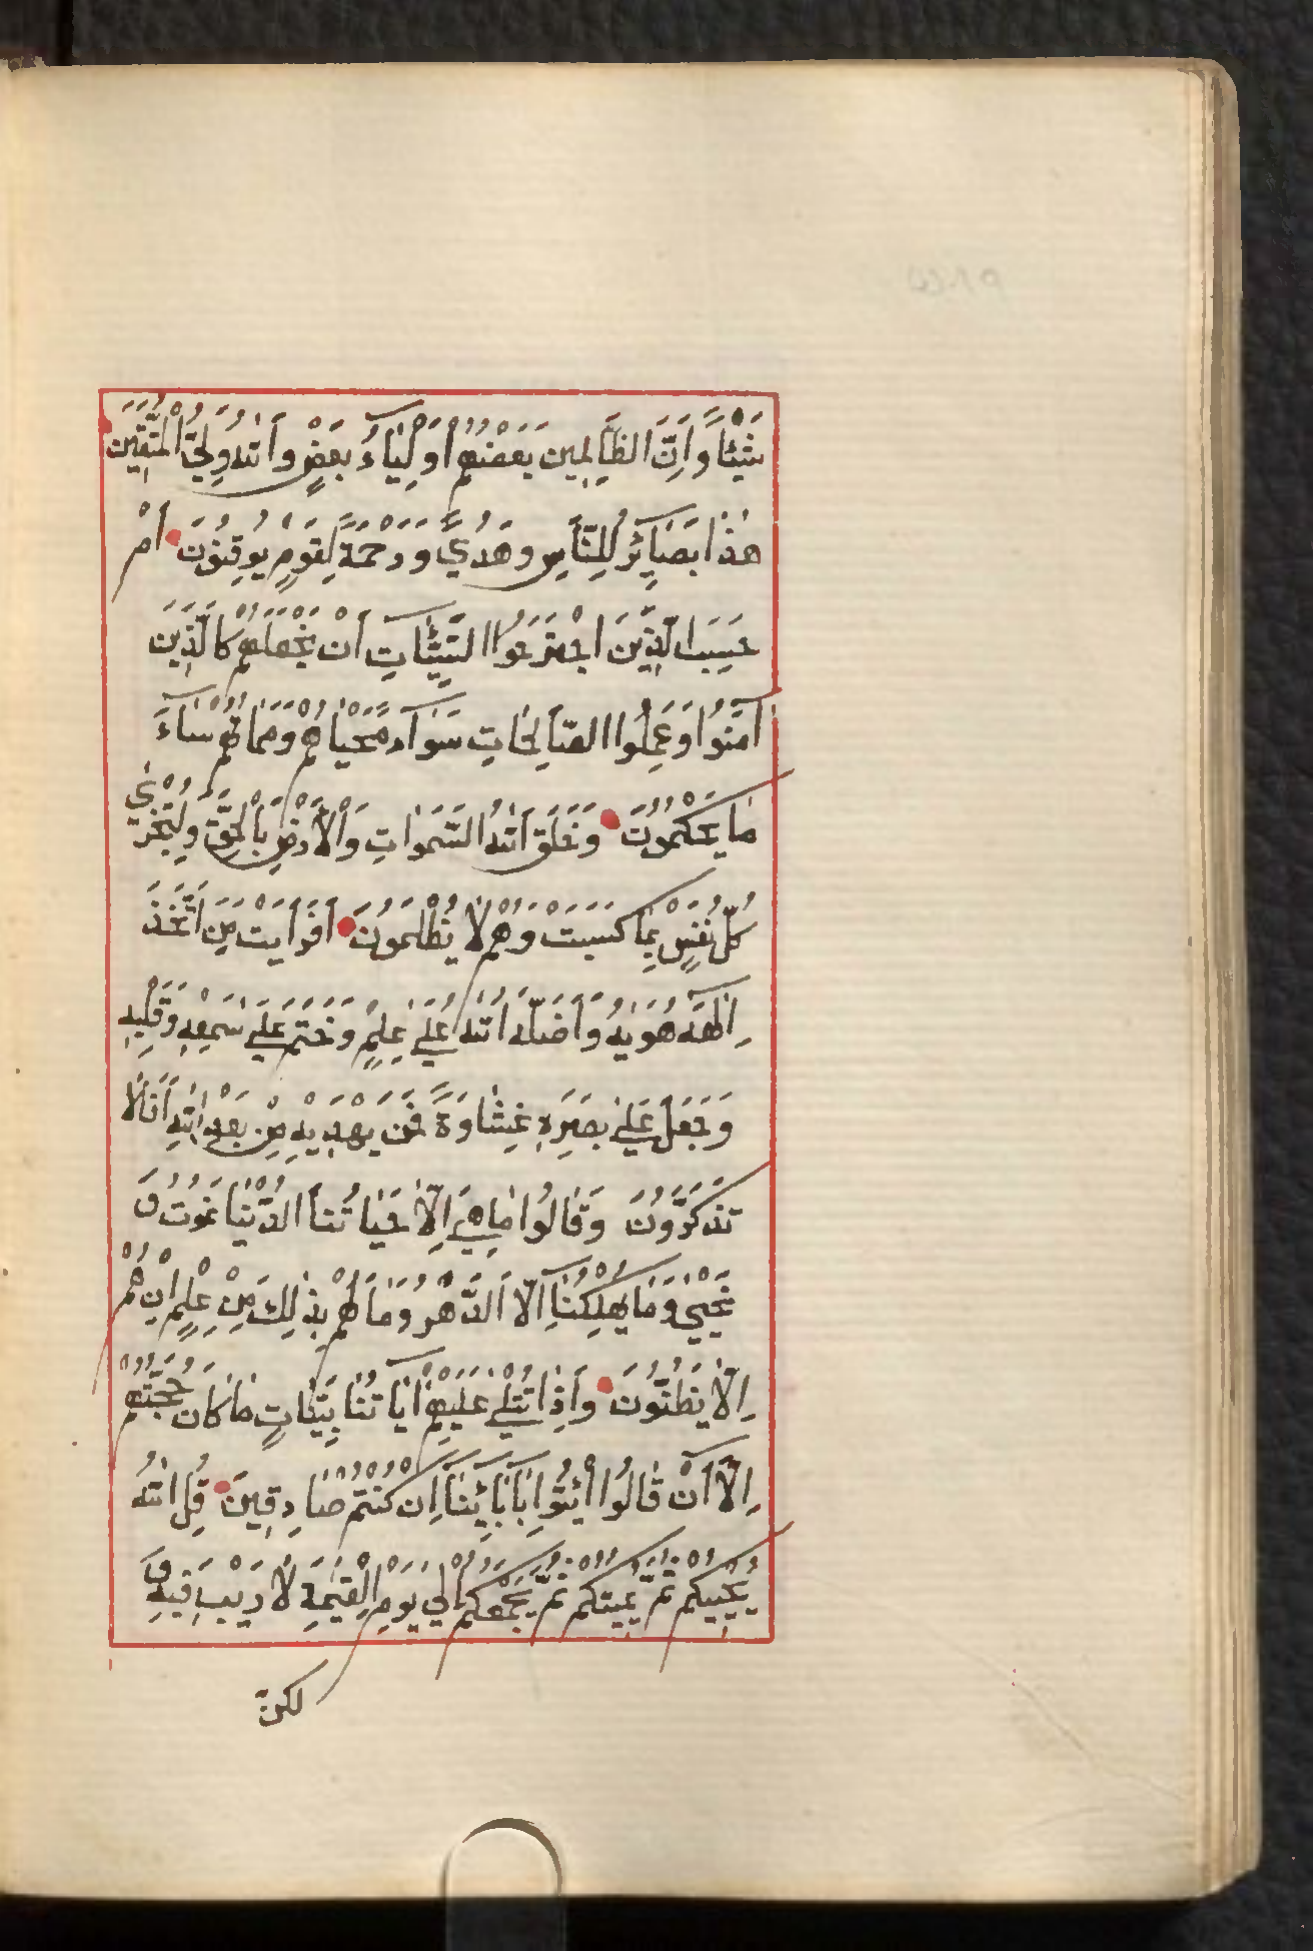 شَيْئًا وَاِنَّ الظَّالِمِينَ بَعْضُهُمْ اَوْلِيَاءُ بَعْضٍ وَاللّٰهُ وَلِيُّ الْمُتَّقِينَ
هٰذَا بَصَآئِرُ لِلنَّاسِ وَهُدًي وَرَحْمَةٌ لِقَوْمٍ يُوقِنُونَ اَمْ
حَسِبَ الَّذِينَ اجْتَرَحُوا السَّيِّئَاتِ اَنْ نَجْعَلَهُمْ كَالَّذِينَ
آمَنُوا وَعَمِلُوا الصَّالِحَاتِ سَوَآءً مَحْيَاهُمْ وَمَمَاتُهُمْ سَآءَ
مَا يَحْكُمُونَ وَخَلَقَ اللّٰهُ السَّمٰوَاتِ وَالْاَرْضَ بِالْحَقِّ وَلِتُجْزٰي
كُلُّ نَفْسٍ بِمَا كَسَبَتْ وَهُمْ لَا يُظْلَمُونَ اَفَرَاَيْتَ مَنِ اتَّخَذَ
اِلٰهَهُ هَوٰيهُ وَاَضَلَّهُ اللّٰهُ عَلٰي عِلْمٍ وَخَتَمَ عَلٰي سَمْعِهِ وَقَلْبِهِ
وَجَعَلَ عَلٰي بَصَرِهِ غِشَاوَةً فَمَنْ يَهْدِيهِ مِنْ بَعْدِ اللّٰهِ اَفَلَا
تَذَكَّرُونَ وَقَالُوا مَا هِيَ اِلَّا حَيَاتُنَا الدُّنْيَا نَمُوتُ وَ
نَحْيٰي وَمَا يُهْلِكُنَآ اِلَّا الدَّهْرُ وَمَا لَهُمْ بِذٰلِكَ مِنْ عِلْمٍ اِنْ هُمْ
اِلَّا يَظُنُّونَ وَاِذَا تُتْلٰي عَلَيْهِمْ آيَاتُنَا بَيِّنَاتٍ مَا كَانَ حُجَّتَهُمْ
اِلَّآ اَنْ قَالُوا ائْتُوا بِآبَآئِنَآ اِنْ كُنْتُمْ صَادِقِينَ قُلِ اللّٰهُ
يُحْيِيكُمْ ثُمَّ يُمِيتُكُمْ ثُمَّ يَجْمَعُكُمْ اِلٰي يَوْمِ الْقِيٰمَةِ لَا رَيْبَ فِيهِ وَ
لكنّ